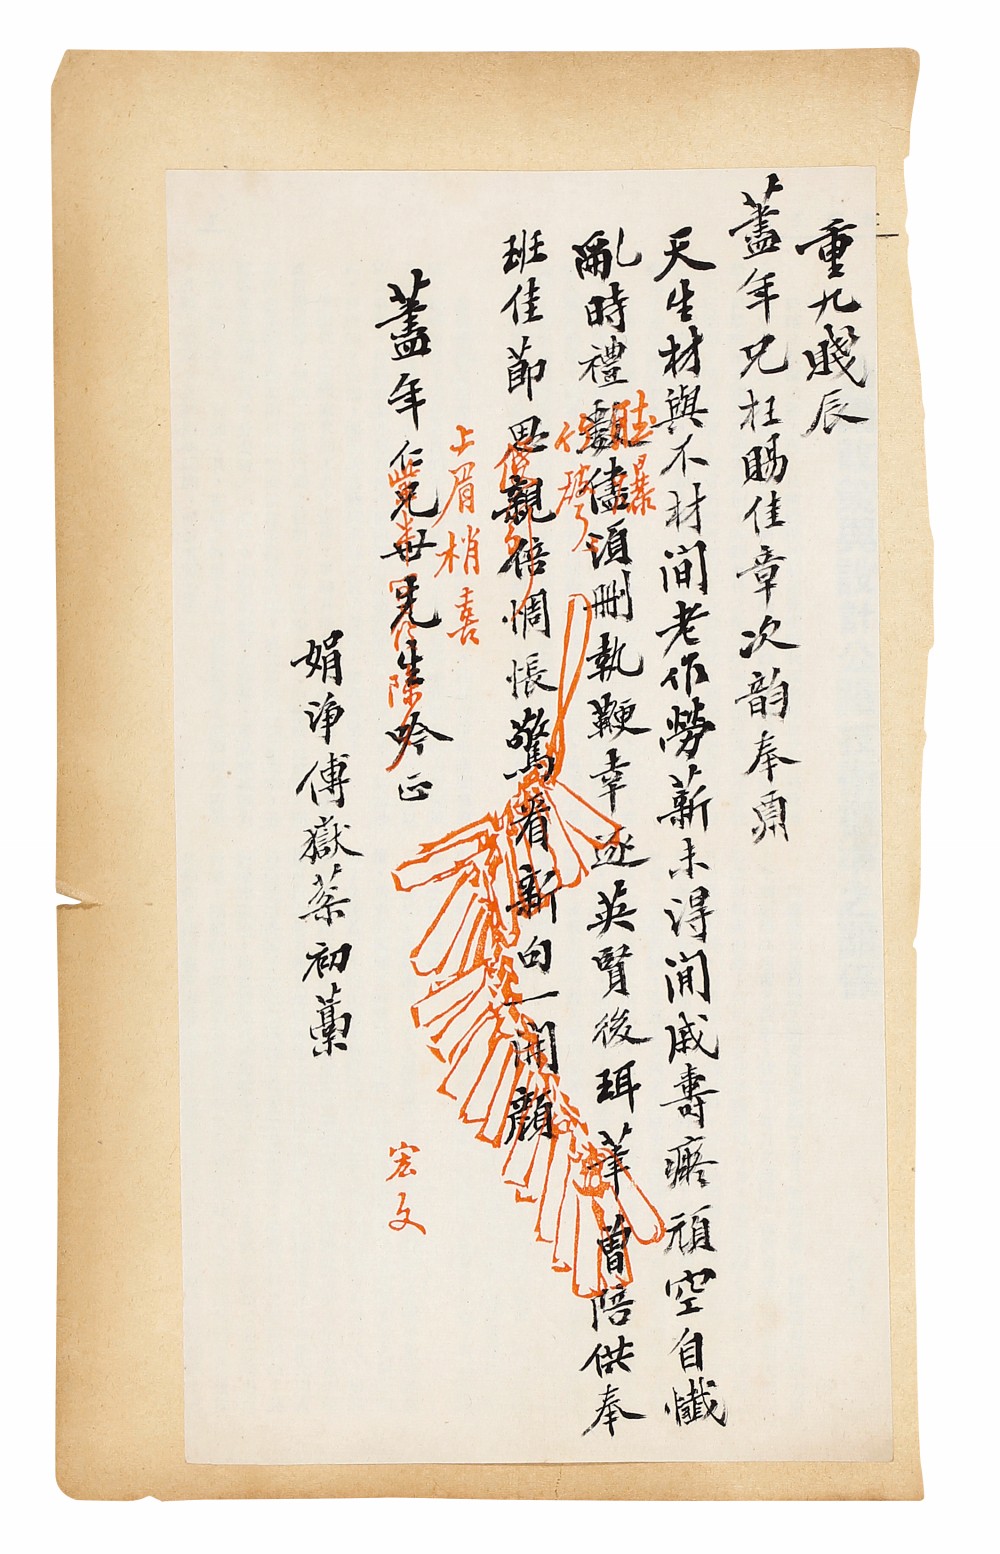 重九賤辰
藎年兄枉賜佳章次韵奉
天生材與不材間老作勞薪未得閒壽頑空自懺
亂時禮數儘須刪執鞭幸逐英賢後珥筆曾陪供奉
班佳節思親倍惆悵驚看新句一開顏
藎年仁兄世先生吟正
娟淨傅嶽棻初藁
爆
竹
上眉梢喜
除夕
宏文